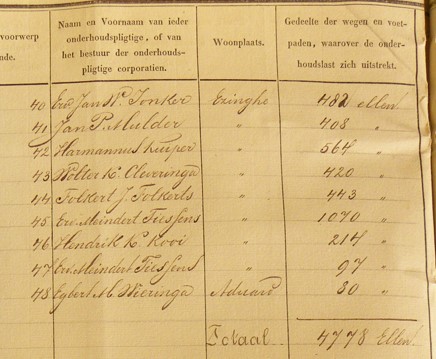 voorwerp
nde.
Naam en Voornaam van ieder
onderhoudspligtige, of van
het bestuur der onderhouds-
pligtige corporatien.
Woonplaats.
Gedeelte der wegen en voet-
paden, waarover de onder-
houdslast zich uitstrekt.
40 Erv. Jan W. Jonker Ezinghe 482 ellen
41 Jan P. Mulder " 408 "
42 Harmannus Kuiper " 564 "
43 Wolter K. Cleveringa " 420 "
44 Folkert J. Folkerts " 443 "
45 Erv. Meindert Tiessens " 1070 "
46 Hendrik K. Kooi " 214 "
47 Erv. Meindert Tiessens " 97 "
48 Egbert M. Wieringa Aduard 80 "
Totaal 4778 Ellen